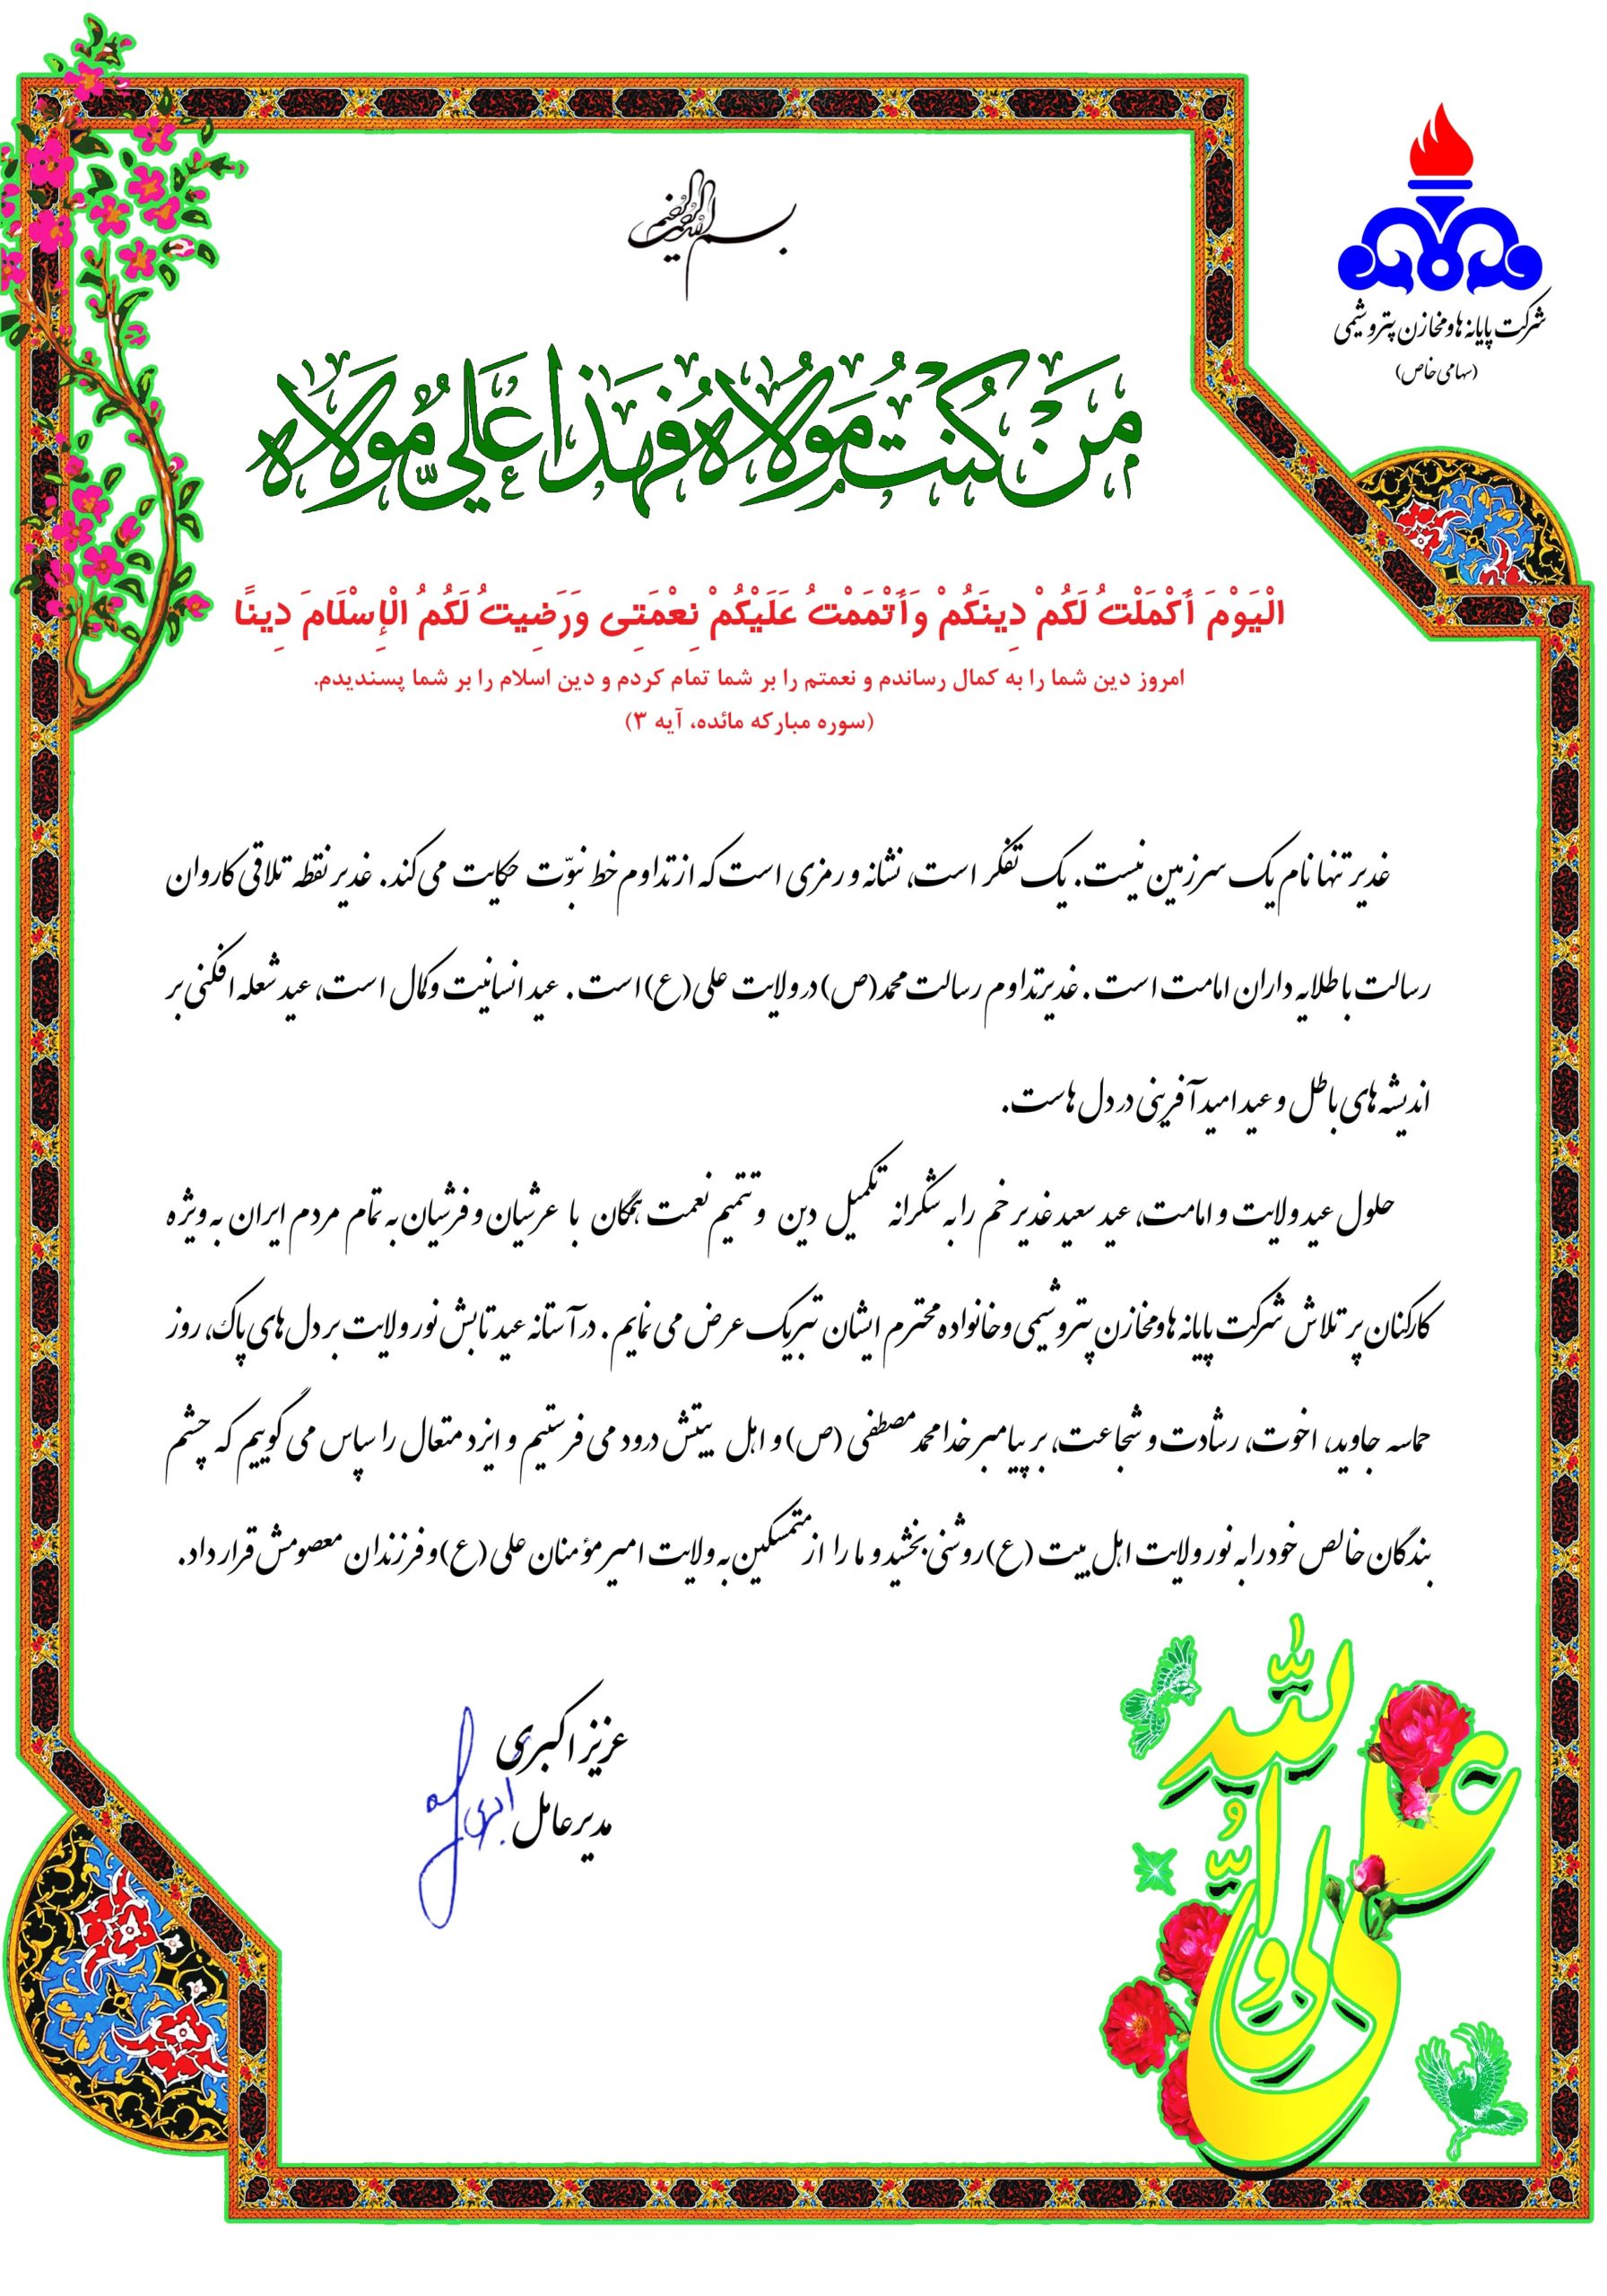 بسم الله الرحمن الرحیم
شرکت پایانه ها و مخازن پتروشیمی
(سهامی خاص)
مَن كُنتُ مَولاهُ فَهَذا عَلیٌّ مَولاه
الْيَوْمَ أَكْمَلْتُ لَكُمْ دِينَكُمْ وَأَتْمَمْتُ عَلَيْكُمْ نِعْمَتِی وَرَضِيتُ لَكُمُ الْإِسْلَامَ دِينًا
امروز دین شما را به کمال رساندم و نعمتم را بر شما تمام کردم و دین اسلام را بر شما پسندیدم.
(سوره مبارکه مائده، آیه ۳)
غدیر تنها نام یک سرزمین نیست. یک تفکر است، نشانه و رمزی است که از تداوم خط نبوّت حکایت می کند. غدیر نقطه تلاقی کاروان
رسالت با طلایه داران امامت است. غدیر تداوم رسالت محمد(ص) در ولایت علی(ع) است. عید انسانیت و کمال است، عید شعله افکنی بر
اندیشه های باطل و عید امید آفرینی در دل هاست.
حلول عید ولایت و امامت، عید سعید غدیر خم را به شکرانه تکمیل دین و تتمیم نعمت همگان با عرشیان و فرشیان به تمام مردم ایران به ویژه
کارکنان پر تلاش شرکت پایانه ها و مخازن پتروشیمی و خانواده محترم ایشان تبریک عرض می نمایم. در آستانه عید تابش نور ولایت بر دل های پاک، روز
حماسه جاوید، اخوت، رشادت و شجاعت، بر پیامبر خدا محمد مصطفی (ص) و اهل بیتش درود می فرستیم و ایزد متعال را سپاس می گوییم که چشم
بندگان خالص خود را به نور ولایت اهل بیت (ع) روشنی بخشید و ما را از متمسکین به ولایت امیرمؤمنان علی (ع) و فرزندان معصومش قرار داد.
عزیز اکبری
مدیرعامل
علی ولی الله